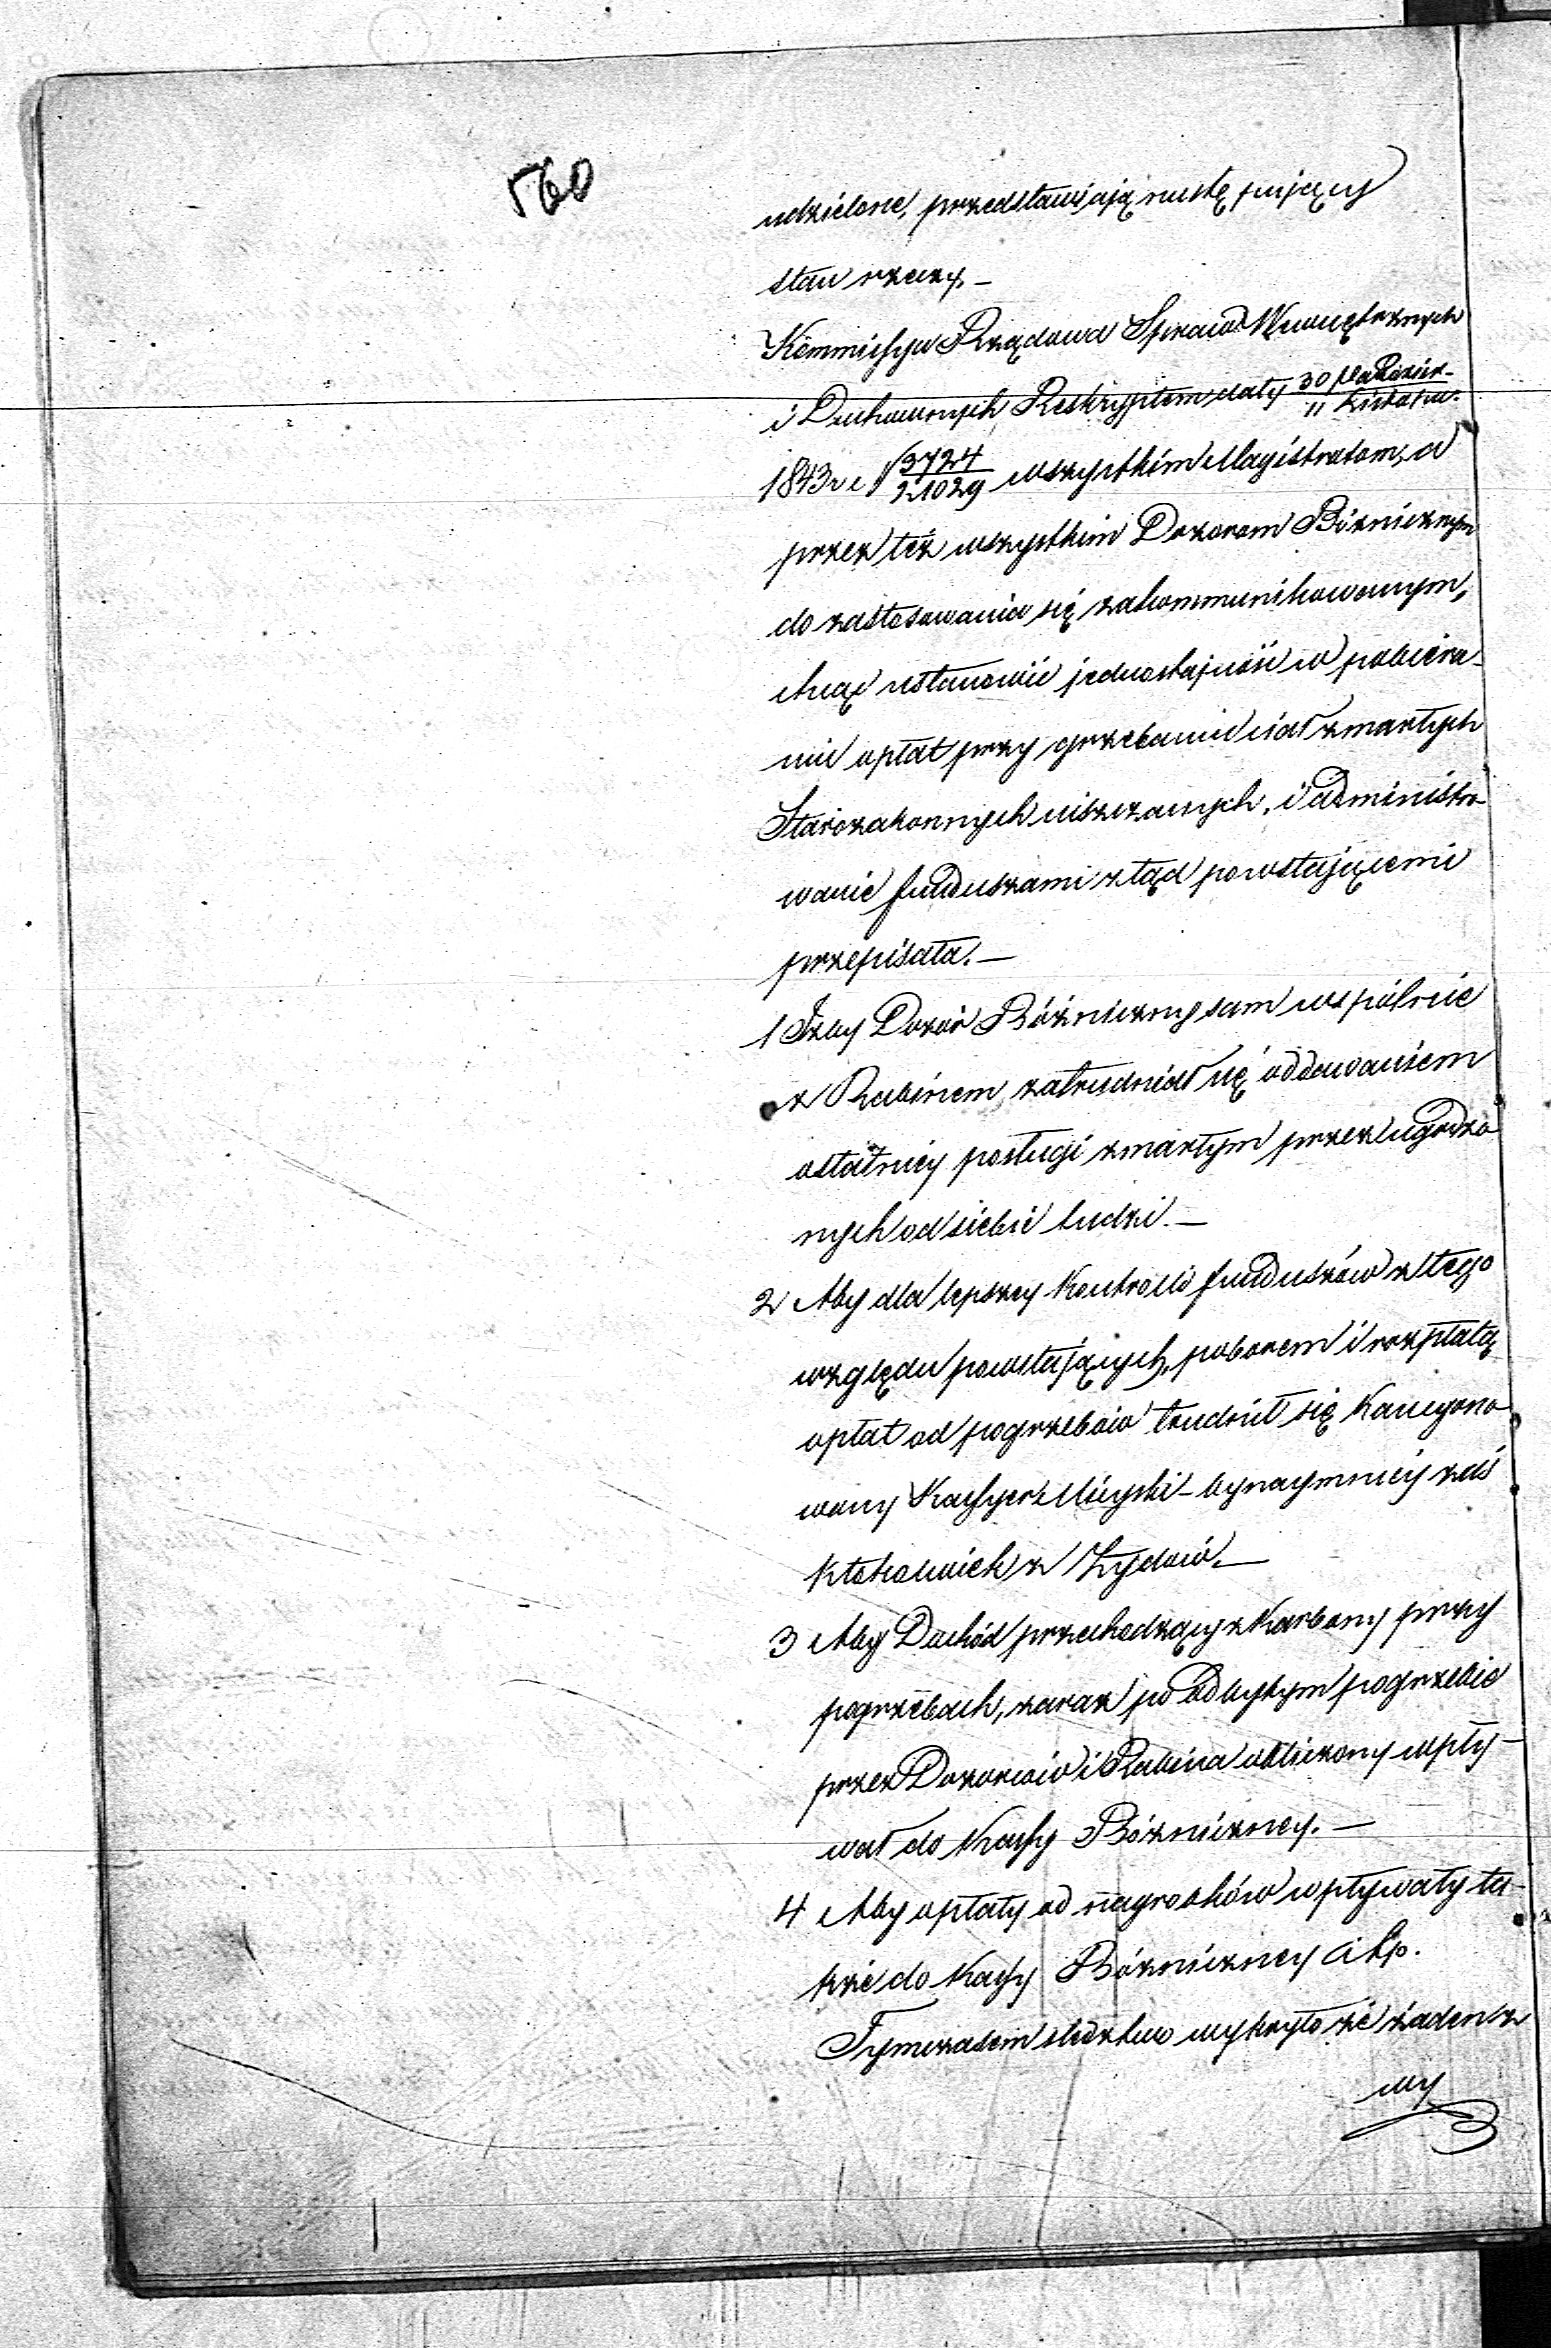 560
udzielone, przedstawiają następujący
stan rzeczy. –
Kommissya Rządowa Spraw Wewnętrznych
i Duchownych Reskryptem daty 30 Paździer- / 11 Listopa.
1843 r. N 3724 / 21029 wszystkim Magistratom, a
przez też wszystkim Dozorom Bóżnicznym
do zastosowania się zakommunikowanym,
chcąc ustanowić jednostajność w pobiera-
niu opłat przy grzebaniu ciał zmarłych
Starozakonnych uiszczanych, i administro-
wanie funduszami ztąd powstającemi
przepisała. –
1 Izby Dozór Bóżniczny sam wspólnie
z Rabinem zatrudniał się oddawaniem
ostatniey posługi zmarłym przez ugodzo
nych od siebie ludzi. –
2 Aby dla lepszey Kontrolli funduszów z tego
względu powstających, poborem i rozpłatą
opłat od pogrzebów trudnił się Kaucyono
wany Kassyer Mieyski – bynaymniey zaś
ktokolwiek z Żydów. –
3 Aby Dochód przechodzący z Karbony przy
pogrzebach, zaraz po odbytym pogrzebie
przez Dozorców i Rabina obliczony wpły-
wał do Kassy Bóżniczney. –
4 Aby opłaty od nagrobków wpływały ta-
kże do Kassy Bóżniczney i t.p.
Tymczasem śledztwo wykryło że żaden z
wy